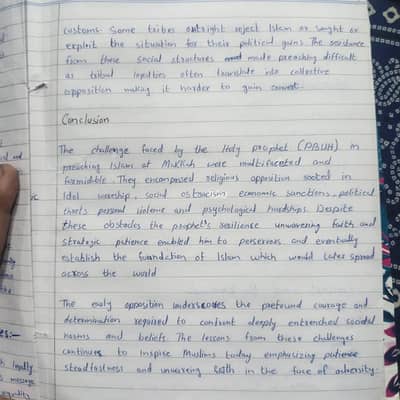 customs. Some tribes outright reject Islam or sought to
exploit the situation for their political gains. The resistance
from these social structures made preaching difficult
as tribal loyalties often translate into collective
opposition making it harder to gain
Conclusion
The challenge faced by the Holy prophet (PBUH) in
preaching Islam at Makkah were multifaceted and
formidable. They encompassed religious opposition rooted in
Idol worship, social ostracism economic sanctions, political
threats personal violence and psychological hardships. Despite
these obstacles the prophet's resilience unwavering faith and
strategic patience enabled him to persevere and eventually
establish the foundation of Islam which would later spread
across the world
The early opposition underscores the profound courage and
determination required to confront deeply entrenched societal
norms and beliefs. The lessons from these challenges
continues to inspire Muslims today emphasizing patience
steadfastness and unwavering faith in the face of adversity.